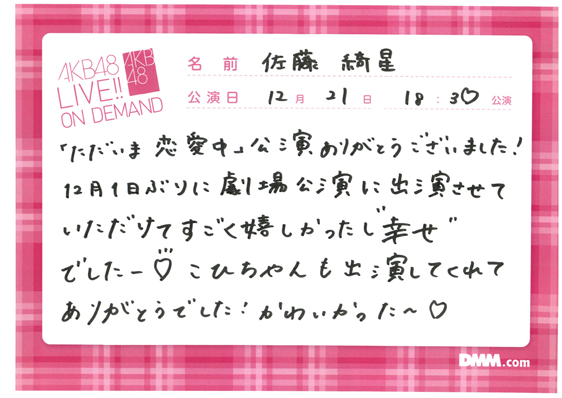 AKB48
LIVE!!
ON DEMAND
AKB
48
名前 佐藤 綺星
公演日 12月 21日 18:30 公演
「ただいま 恋愛中」公演ありがとうございました!
12月1日ぶりに劇場公演に出演させて
いただけてすごく嬉しかったし"幸せ"
でしたー♡ こひちゃんも出演してくれて
ありがとうでした! かわいかった〜♡
DMM.com